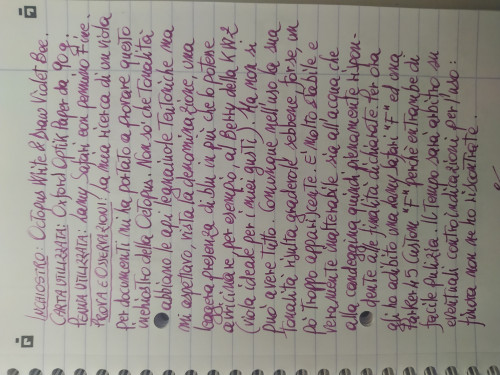 INCHIOSTRO: Octopus Write & Draw Violet Bee.
CARTA UTILIZZATA: Oxford Optik Paper da 90 g.
PENNA UTILIZZATA: Lamy Safari con pennino Fine.
PROVA E OSSERVAZIONI: la mia ricerca di un viola
per documenti mi ha portato a provare questo
inchiostro della Octopus. Non so che tonalità
abbiano le api legnaiuole Teutoniche ma
mi aspettavo, vista la denominazione, una
leggera presenza di blu in più che lo potesse
avvicinare per esempio al Berry della KWZ
(viola ideale per i miei gusti). Ma non si
può avere tutto. Comunque nell'uso la sua
tonalità risulta gradevole sebbene, forse, un
po' troppo appariscente. È molto stabile e
veramente inalterabile sia all'acqua che
alla candeggina quindi pienamente rispon-
dente alle finalità dichiarate. Per ora
gli ho adibito una Lamy Safari "F" ed una
Parker 45 Custom "F" perché entrambe di
facile pulizia. Il tempo sarà arbitro su
eventuali controindicazioni per l'uso:
finora non ne ho riscontrate.